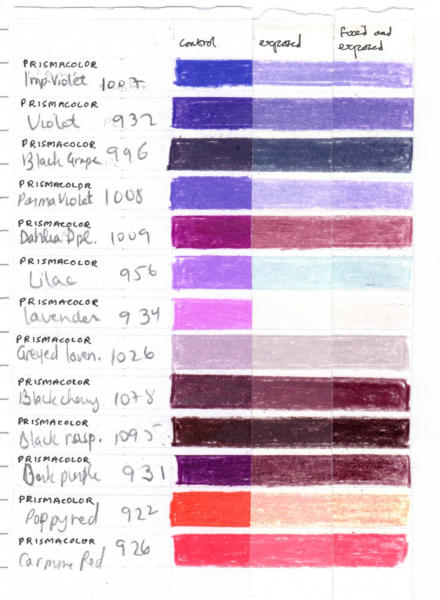 control exposed fixed and
exposed
PRISMACOLOR
Imp. Violet 1007
PRISMACOLOR
Violet 932
PRISMACOLOR
Black Grape 996
PRISMACOLOR
Parma Violet 1008
PRISMACOLOR
Dahlia Ppl. 1009
PRISMACOLOR
Lilac 956
PRISMACOLOR
lavender 934
PRISMACOLOR
Greyed laven. 1026
PRISMACOLOR
Black cherry 1078
PRISMACOLOR
Black rasp. 1095
PRISMACOLOR
Dark purple 931
PRISMACOLOR
Poppy red 922
PRISMACOLOR
Carmine Red 926